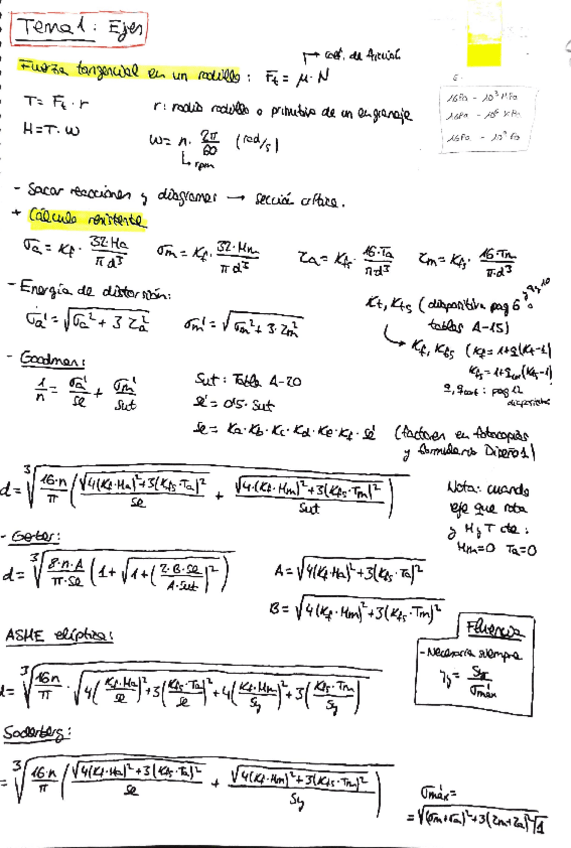 Tema 1: Ejes
→ coef. de fricción
Fuerza tangencial en un rodillo: Ft = μ·N
1GPa - 10³ MPa
1MPa - 10⁶ Pa
T = Ft·r    r: radio rodillo o primitivo de un engranaje
H = T·w    w = n·2π/60 (rad/s)
rpm
- Sacar reacciones y diagramas → sección crítica.
+ Cálculo resistente
σa = Kf·32·Ma/πd³    σm = Kf·32·Mm/πd³    τa = Kfs·16·Ta/πd³    τm = Kfs·16·Tm/π·d³
- Energía de distorsión:
σa' = √(σa² + 3τa²)    σm' = √(σm² + 3·τm²)
Kt, Kts (diapositiva pag 6
tablas A-15)
→ Kf, Kfs (Kf = 1+q(Kt-1)
Kfs = 1+qcort(Kts-1)
q, qcort: pag 12
diapositivas
- Goodman:
1/n = σa'/Se + σm'/Sut    Sut: Tabla A-20
Se' = 0'5·Sut
Se = Ka·Kb·Kc·Kd·Ke·Kf·Se' (factores en fotocopias
y formulario Diseño 1)
d = ∛(16·n/π (√(4(Kf·Ma)²+3(Kfs·Ta)²)/Se + √(4·(Kf·Mm)²+3(Kfs·Tm)²)/Sut))
Nota: cuando
eje que rota
y M y T cte:
Mm=0 Ta=0
- Gerber:
d = ∛(8·n·A/π·Se (1+√(1+(2·B·Se/A·Sut)²)))    A = √(4(Kf·Ma)²+3(Kfs·Ta)²)
B = √(4(Kf·Mm)²+3(Kfs·Tm)²)
ASME elíptica:
d = ∛(16n/π·√(4(Kf·Ma/Se)²+3(Kfs·Ta/Se)²+4(Kf·Mm/Sy)²+3(Kfs·Tm/Sy)²))
Fluencia
- Necesaria siempre
ny = Sy/σ'máx
Soderberg:
= ∛(16·n/π (√(4(Kf·Ma)²+3(Kfs·Ta)²)/Se + √(4(Kf·Mm)²+3(Kfs·Tm)²)/Sy))
σ'máx =
= √((σm+σa)²+3(τm+τa)²)